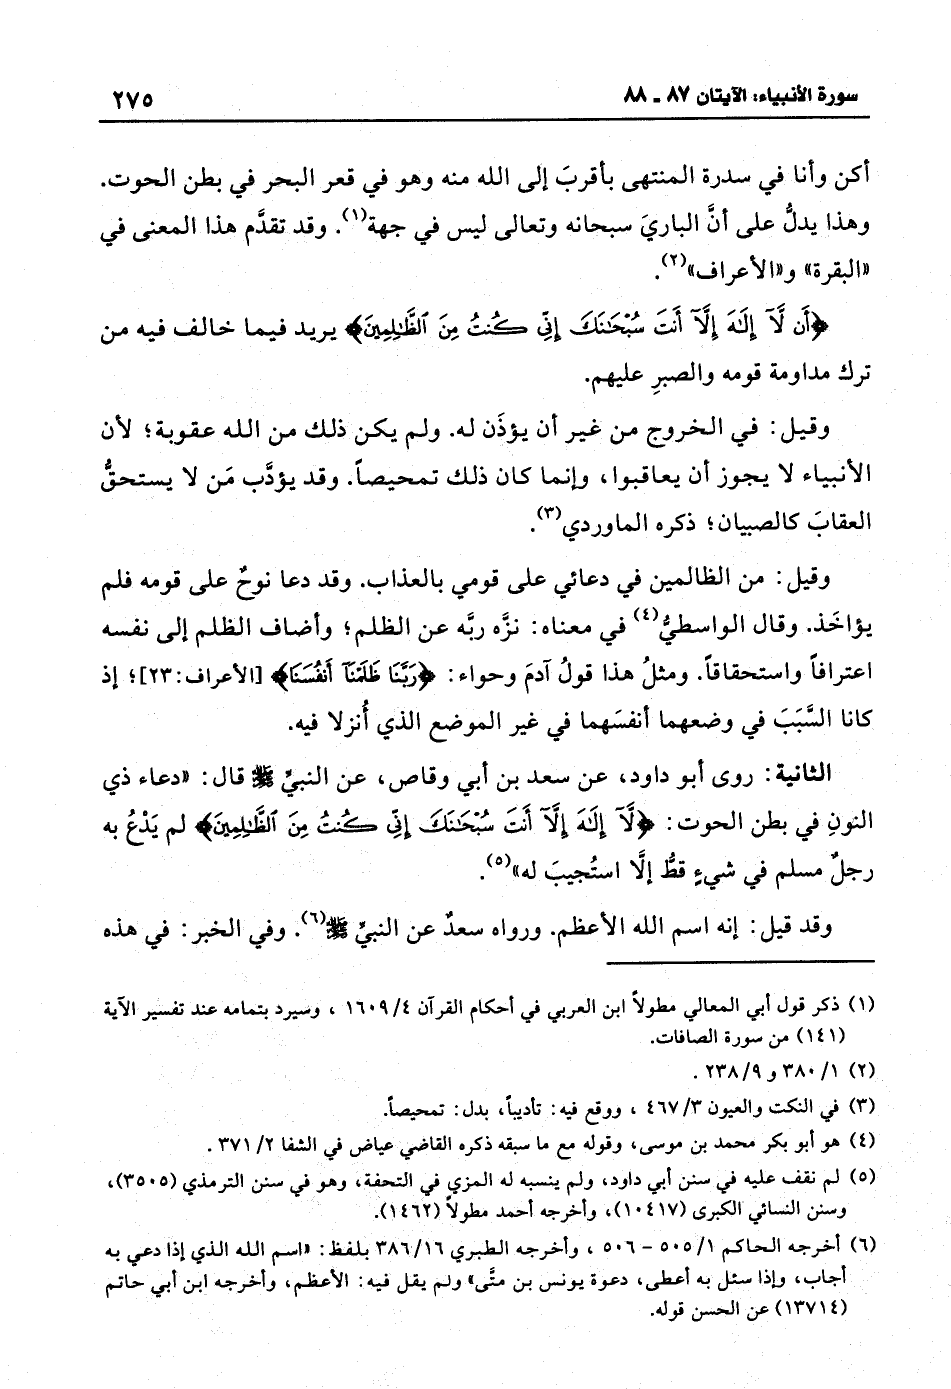 سورة الأنبياء: الآيتان ٨٧ ـ ٨٨
٢٧٥
أكن وأنا في سدرة المنتهى بأقربَ إلى الله منه وهو في قعر البحر في بطن الحوت.
وهذا يدلُّ على أنَّ الباريَ سبحانه وتعالى ليس في جهة(١). وقد تقدَّم هذا المعنى في
«البقرة» و«الأعراف»(٢).
﴿أَن لَّآ إِلَٰهَ إِلَّآ أَنتَ سُبْحَٰنَكَ إِنِّي كُنتُ مِنَ ٱلظَّٰلِمِينَ﴾ يريد فيما خالف فيه من
ترك مداومة قومه والصبرِ عليهم.
وقيل: في الخروج من غير أن يؤذَن له. ولم يكن ذلك من الله عقوبة؛ لأن
الأنبياء لا يجوز أن يعاقبوا، وإنما كان ذلك تمحيصاً. وقد يؤدَّب مَن لا يستحقُّ
العقابَ كالصبيان؛ ذكره الماوردي(٣).
وقيل: من الظالمين في دعائي على قومي بالعذاب. وقد دعا نوحٌ على قومه فلم
يؤاخَذ. وقال الواسطيُّ(٤) في معناه: نزَّه ربَّه عن الظلم؛ وأضاف الظلم إلى نفسه
اعترافاً واستحقاقاً. ومثلُ هذا قولُ آدمَ وحواء: ﴿رَبَّنَا ظَلَمْنَآ أَنفُسَنَا﴾ [الأعراف:٢٣]؛ إذ
كانا السَّبَبَ في وضعهما أنفسَهما في غير الموضع الذي أُنزلا فيه.
الثانية: روى أبو داود، عن سعد بن أبي وقاص، عن النبيِّ ﷺ قال: «دعاء ذي
النونِ في بطن الحوت: ﴿لَّآ إِلَٰهَ إِلَّآ أَنتَ سُبْحَٰنَكَ إِنِّي كُنتُ مِنَ ٱلظَّٰلِمِينَ﴾ لم يَدْعُ به
رجلٌ مسلم في شيءٍ قطُّ إلَّا استُجيبَ له»(٥).
وقد قيل: إنه اسم الله الأعظم. ورواه سعدٌ عن النبيِّ ﷺ(٦). وفي الخبر: في هذه
(١) ذكر قول أبي المعالي مطولاً ابن العربي في أحكام القرآن ٤/ ١٦٠٩ ، وسيرد بتمامه عند تفسير الآية
(١٤١) من سورة الصافات.
(٢) ١/ ٣٨٠ و ٩/ ٢٣٨ .
(٣) في النكت والعيون ٣/ ٤٦٧ ، ووقع فيه: تأديباً، بدل: تمحيصاً.
(٤) هو أبو بكر محمد بن موسى، وقوله مع ما سبقه ذكره القاضي عياض في الشفا ٢/ ٣٧١ .
(٥) لم نقف عليه في سنن أبي داود، ولم ينسبه له المزي في التحفة، وهو في سنن الترمذي (٣٥٠٥)،
وسنن النسائي الكبرى (١٠٤١٧)، وأخرجه أحمد مطولاً (١٤٦٢).
(٦) أخرجه الحاكم ١/ ٥٠٥ - ٥٠٦ ، وأخرجه الطبري ١٦/ ٣٨٦ بلفظ: «اسم الله الذي إذا دعي به
أجاب، وإذا سئل به أعطى، دعوة يونس بن متَّى» ولم يقل فيه: الأعظم، وأخرجه ابن أبي حاتم
(١٣٧١٤) عن الحسن قوله.